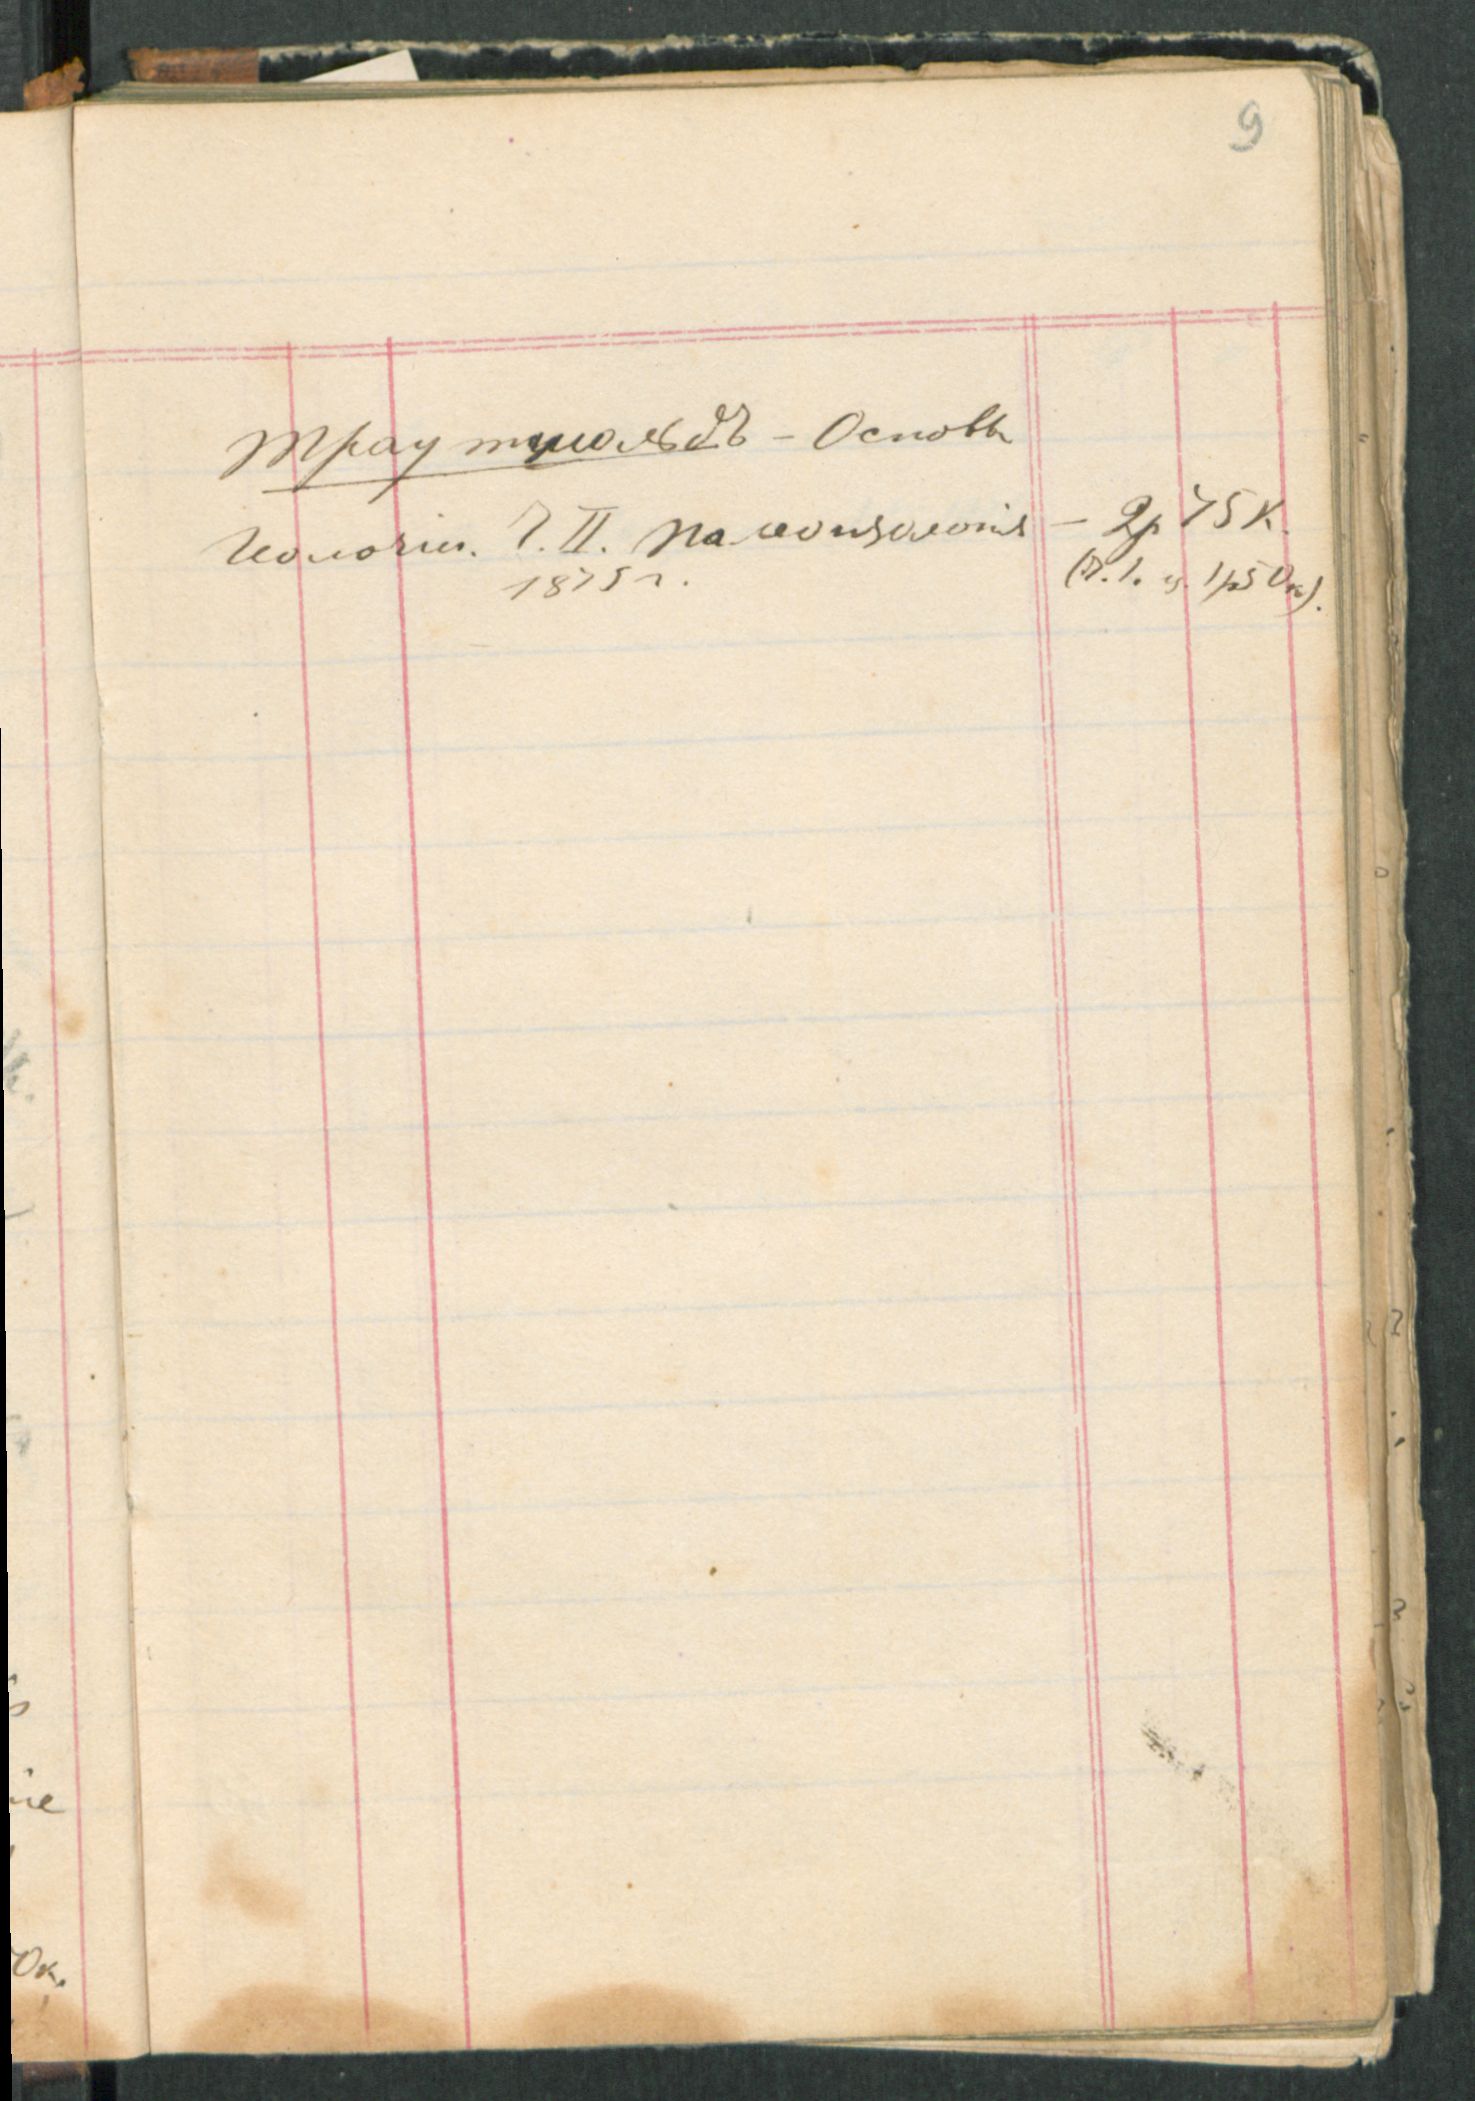 9
Траутшольдъ – Основы
Геологіи. Ч. II. Палеонтологія – 2р 75 к.
1875 г. (Ч. I. ц. 1р50к).
іе
0к.